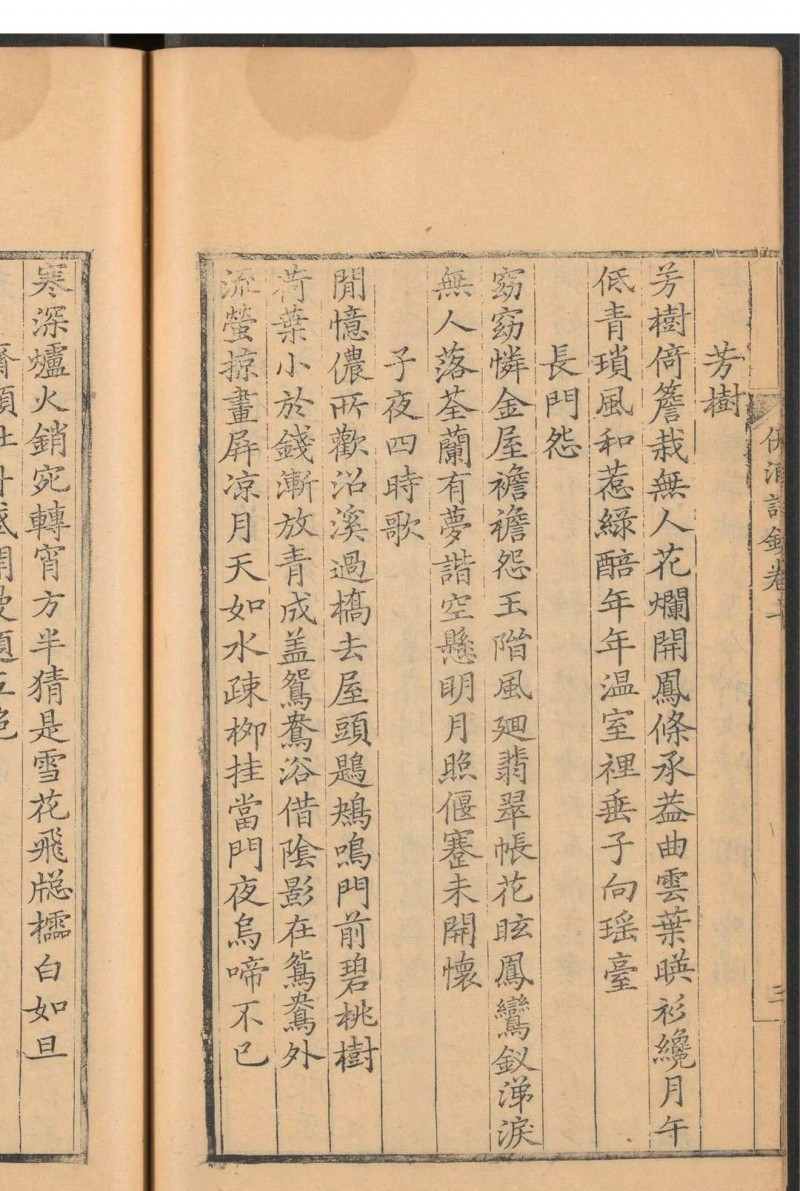 詩鈔卷十
三
芳樹
芳樹倚簷栽無人花爛開鳳條承葢曲雲葉暎衫纔月午
低青瑣風和惹綠醅年年温室裡垂子向瑶臺
長門怨
窈窈憐金屋襜襜怨玉階風廻翡翠帳花眩鳳鸞釵涕淚
無人落荃蘭有夢諧空懸明月照偃蹇未開懷
子夜四時歌
閒憶儂所歡沿溪過橋去屋頭鶗鴂鳴門前碧桃樹
荷葉小於錢漸放青成盖鴛鴦浴借陰影在鴛鴦外
流螢掠畫屏凉月天如水疎栁挂當門夜烏啼不已
寒深爐火銷宛轉宵方半猜是雪花飛牕櫺白如旦